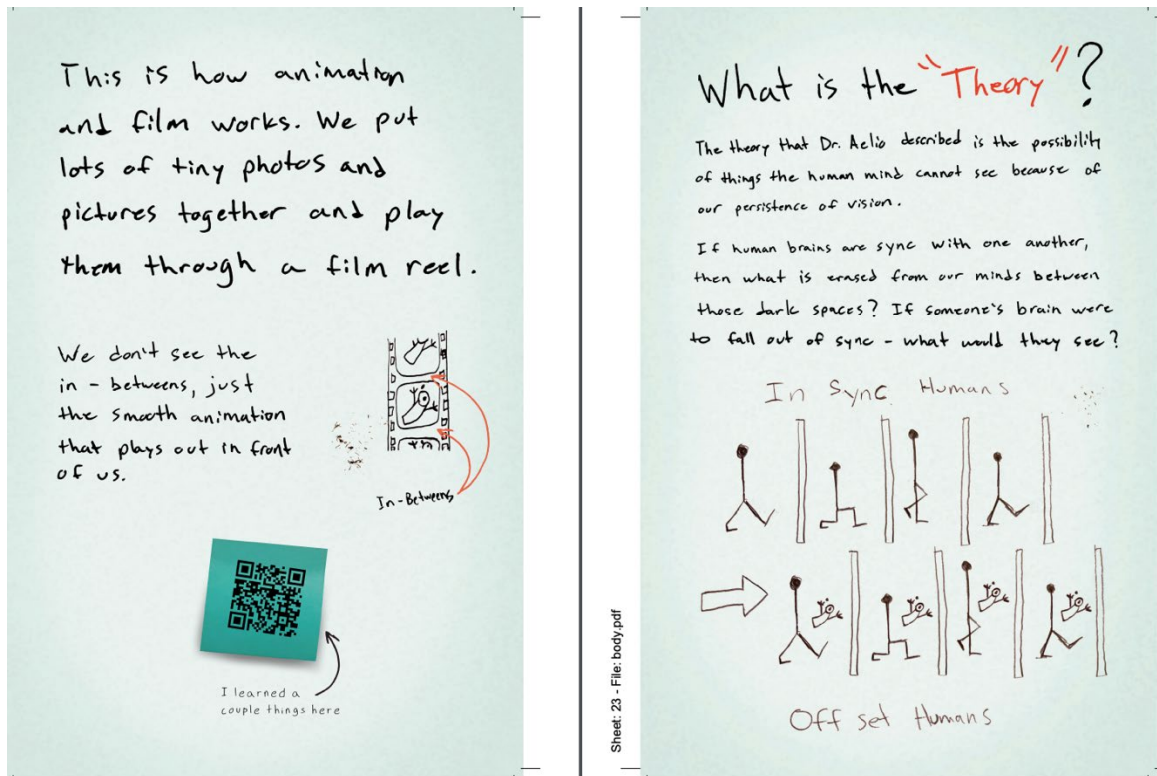 This is how animation
and film works. We put
lots of tiny photos and
pictures together and play
them through a film reel.
We don't see the
in - betweens, just
the smooth animation
that plays out in front
of us.
In-Betweens
I learned a
couple things here
Sheet: 23 - File: body.pdf
What is the "Theory"?
The theory that Dr. Aelio described is the possibility
of things the human mind cannot see because of
our persistence of vision.
If human brains are sync with one another,
then what is erased from our minds between
those dark spaces? If someone's brain were
to fall out of sync - what would they see?
In Sync Humans
Off set Humans